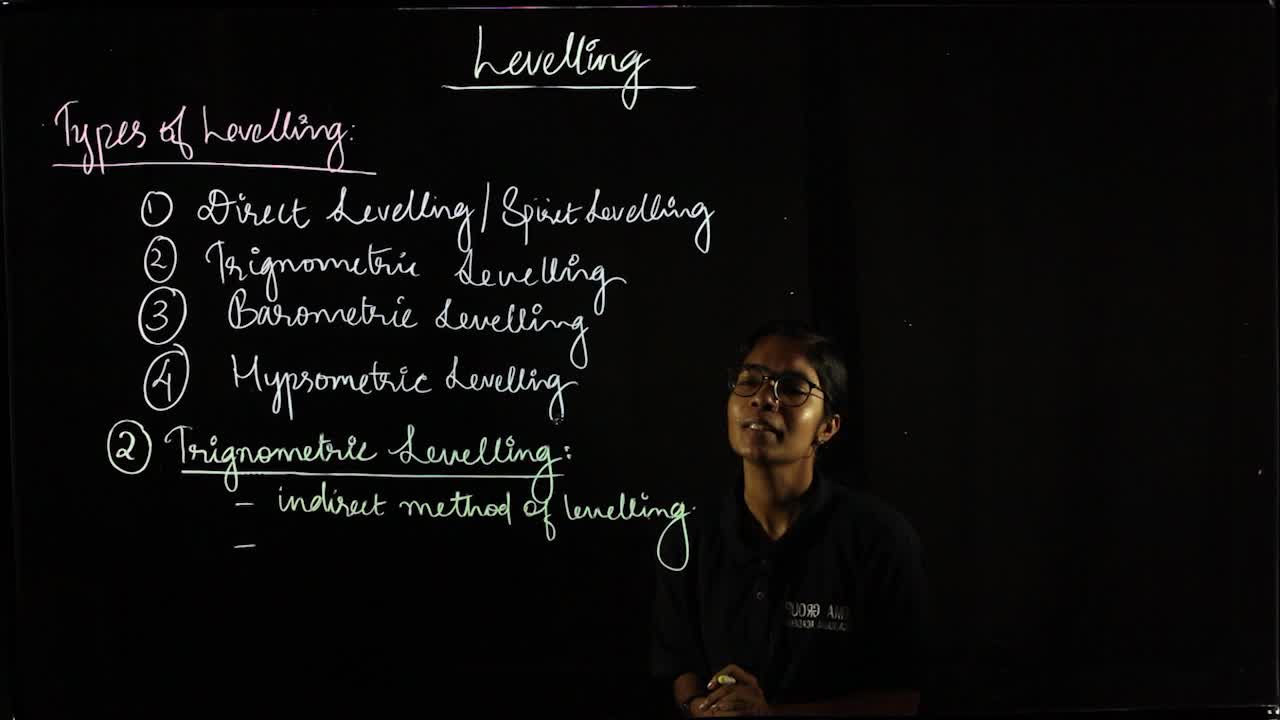 Levelling
Types of Levelling:
① Direct Levelling/Spiret Levelling
② Trignometric Levelling
③ Barometric Levelling
④ Hypsometric Levelling
② Trignometric Levelling:
– indirect method of levelling.
–
GROUP